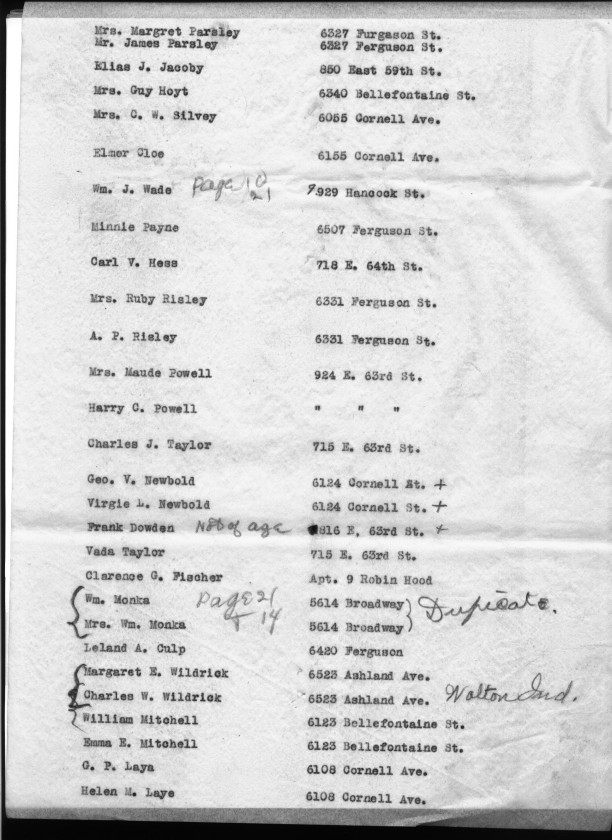 Mrs. Margret Parsley 6327 Furgason St.
Mr. James Parsley 6327 Ferguson St.
Elias J. Jacoby 850 East 59th St.
Mrs. Guy Hoyt 6340 Bellefontaine St.
Mrs. C. W. Silvey 6055 Cornell Ave.
Elmer Cloe 6155 Cornell Ave.
Wm. J. Wade Page 10 21 929 Hancook St.
Minnie Payne 6507 Ferguson St.
Carl V. Hess 718 E. 64th St.
Mrs. Ruby Risley 6331 Ferguson St.
A. P. Risley 6331 Ferguson St.
Mrs. Maude Powell 924 E. 63rd St.
Harry C. Powell " " "
Charles J. Taylor 715 E. 63rd St.
Geo. V. Newbold 6124 Cornell St. +
Virgie L. Newbold 6124 Cornell St. +
Frank Dowden Not of age 816 E, 63rd St. +
Vada Taylor 715 E. 63rd St.
Clarence G. Fischer Apt. 9 Robin Hood
Wm. Monka Page 21 5614 Broadway Dupicate.
Mrs. Wm. Monka + 14 5614 Broadway
Leland A. Culp 6420 Ferguson
Margaret E. Wildrick 6523 Ashland Ave.
Charles W. Wildrick 6523 Ashland Ave. Walton Ind.
William Mitchell 6123 Bellefontaine St.
Emma E. Mitchell 6123 Bellefontaine St.
G. P. Laya 6108 Cornell Ave.
Helen M. Laye 6108 Cornell Ave.